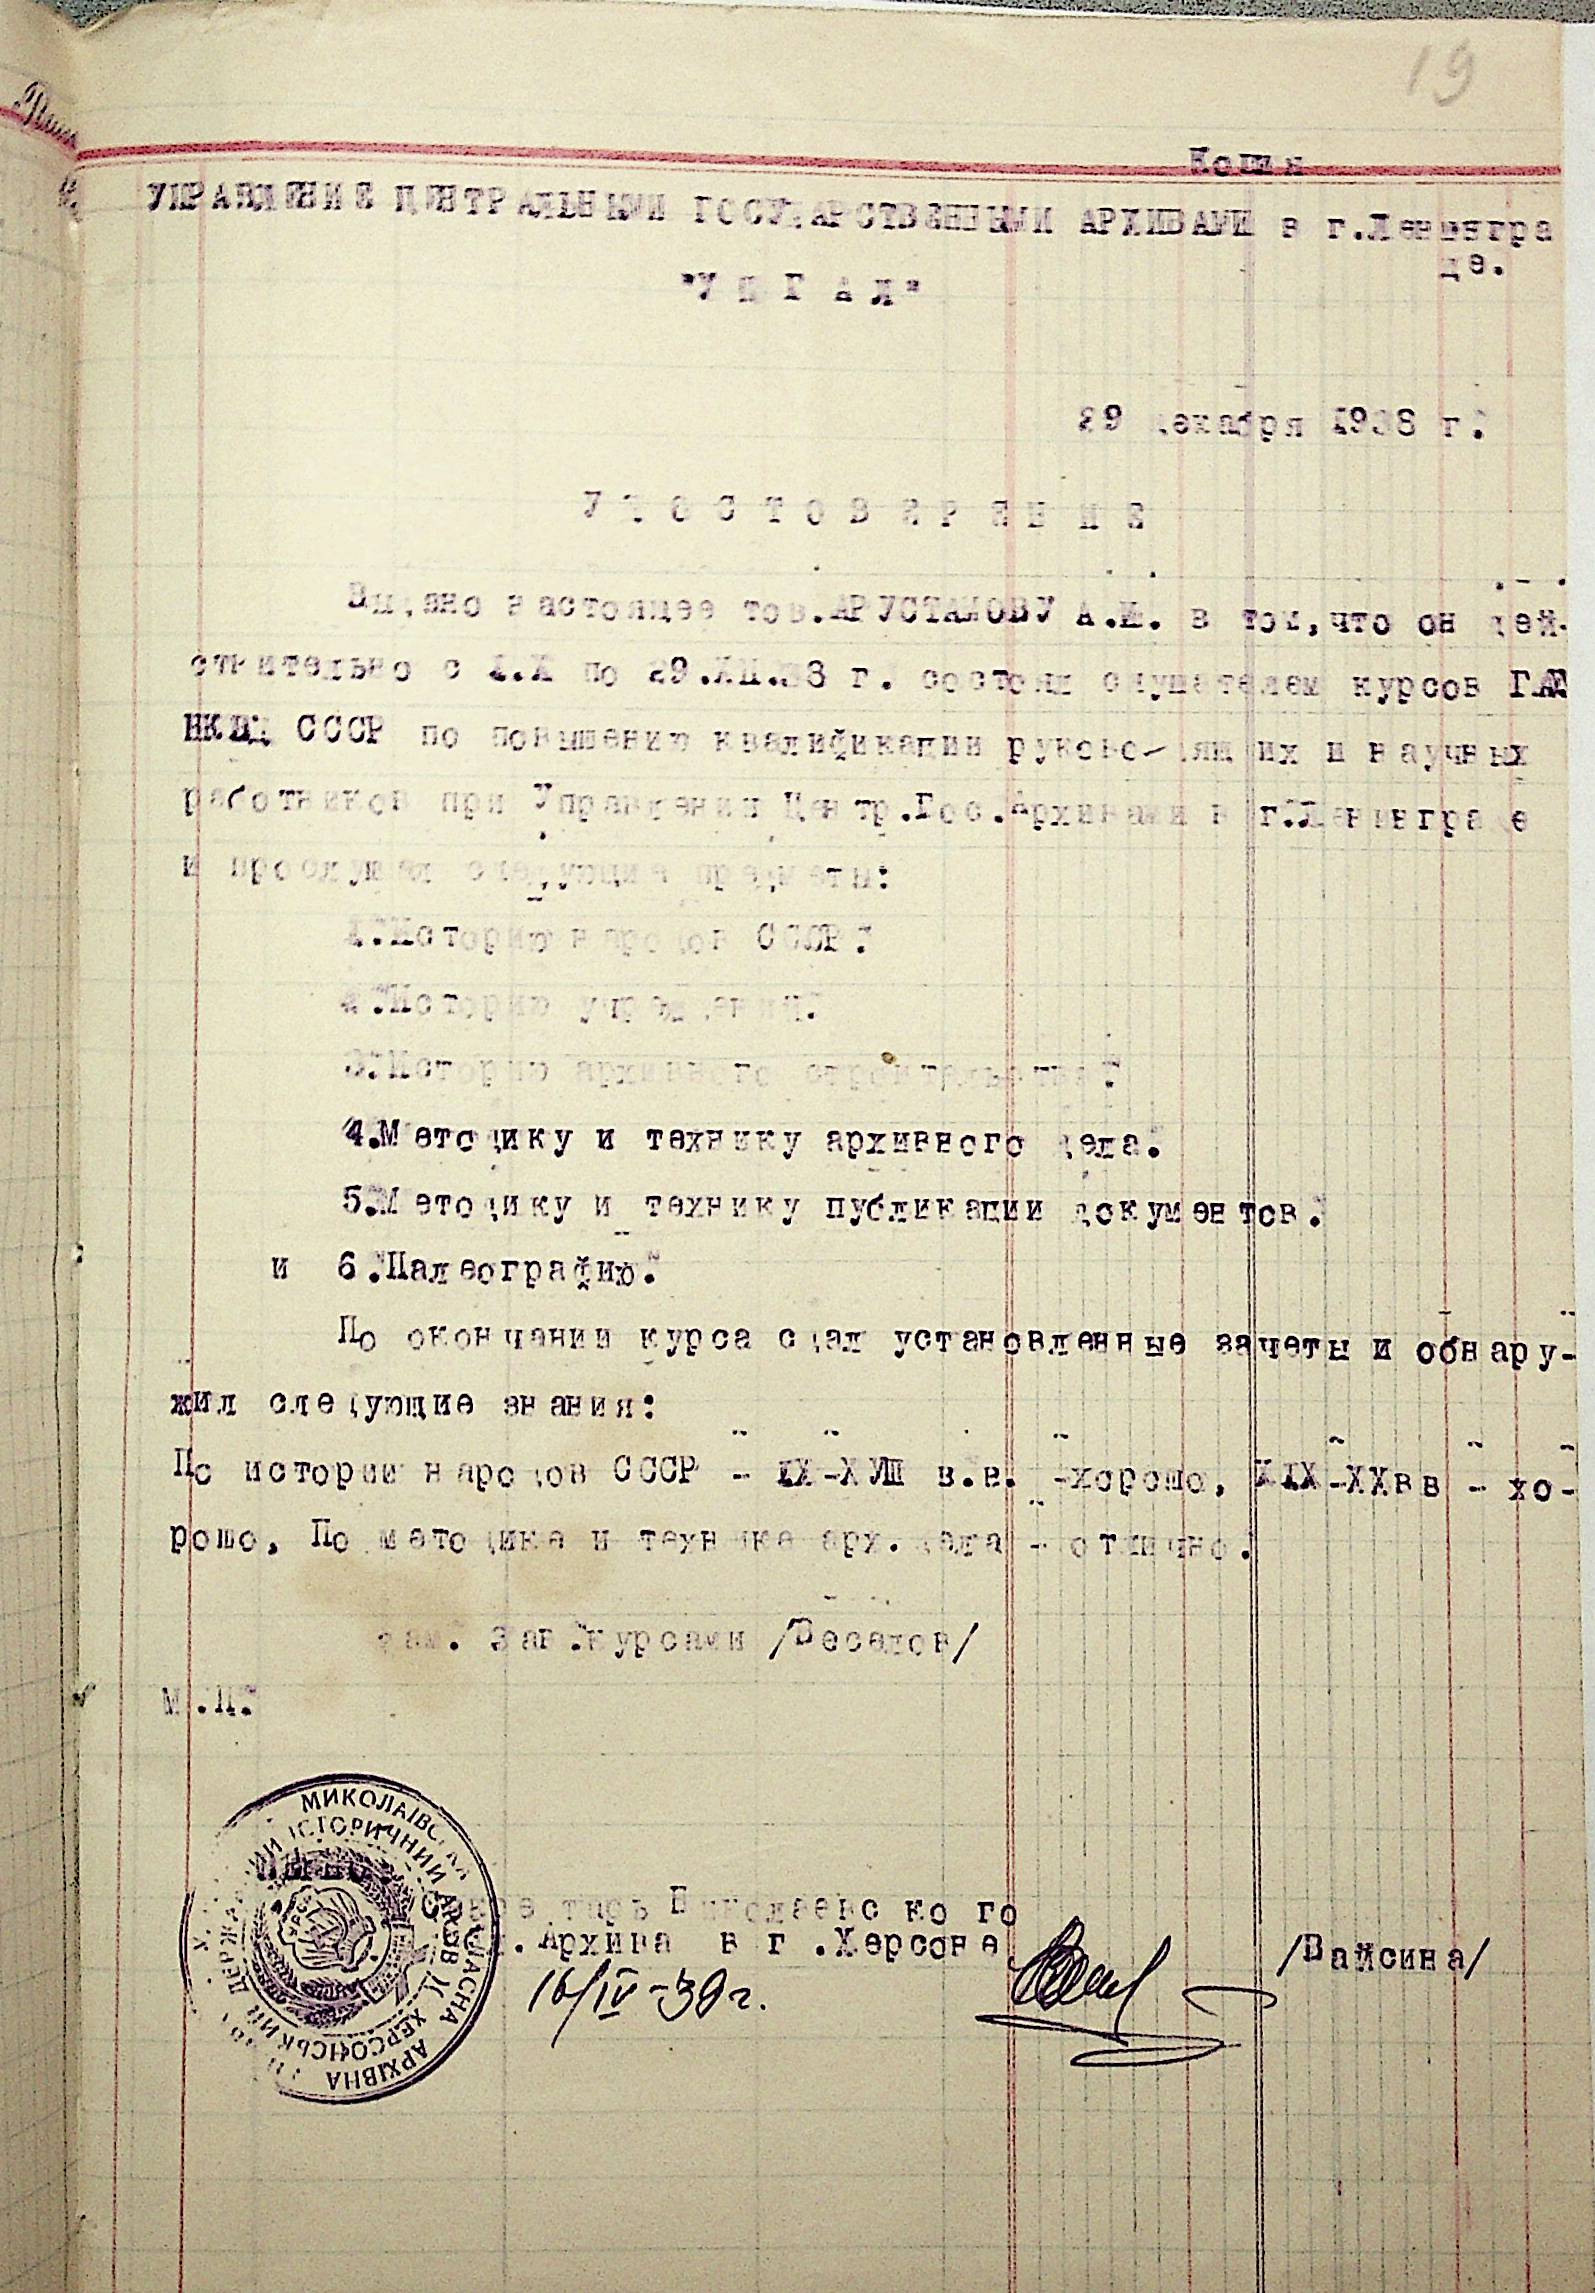 19
Копия
УПРАВЛЕНИЕ ЦЕНТРАЛЬНЫМИ ГОСУДАРСТВЕННЫМИ АРХИВАМИ в г.Ленингра
де.
"У Ц Г А Л"
29 декабря 1938 г.
У Д О С Т О В Е Р Е Н И Е
Выдано настоящее тов.АРУСТАМОВУ А.М. в том,что он дей-
ствительно с 1.X по 29.XII.38 г. состоял слушателем курсов ГАУ
НКВД СССР по повышению квалификации руководящих и научных
работников при Управлении Центр.Гос.Архивами в г.Ленинграде
и прослушал следующие предметы:
1.Историю народов СССР.
2.Историю учреждений.
3.Историю архивного строительства.
4.Методику и технику архивного дела.
5.Методику и технику публикации документов.
и 6.Палеографию.
По окончании курса сдал установленные зачеты и обнару-
жил следующие знания:
По истории народов СССР - IX-XVIII в.в. -хорошо, XIX-XXвв - хо-
рошо, По методике и технике арх.дела - отлично.
зам. Зав.курсами /Веселов/
М.П.
МИКОЛАЇВСЬКА ОБЛАСНА АРХІВНА
ХЕРСОНСЬКИЙ ДЕРЖАВНИЙ ІСТОРИЧНИЙ АРХІВ
УРСР
Секретарь Николаевского
.Архива в г.Херсоне /Вайсина/
16/IV-39г.